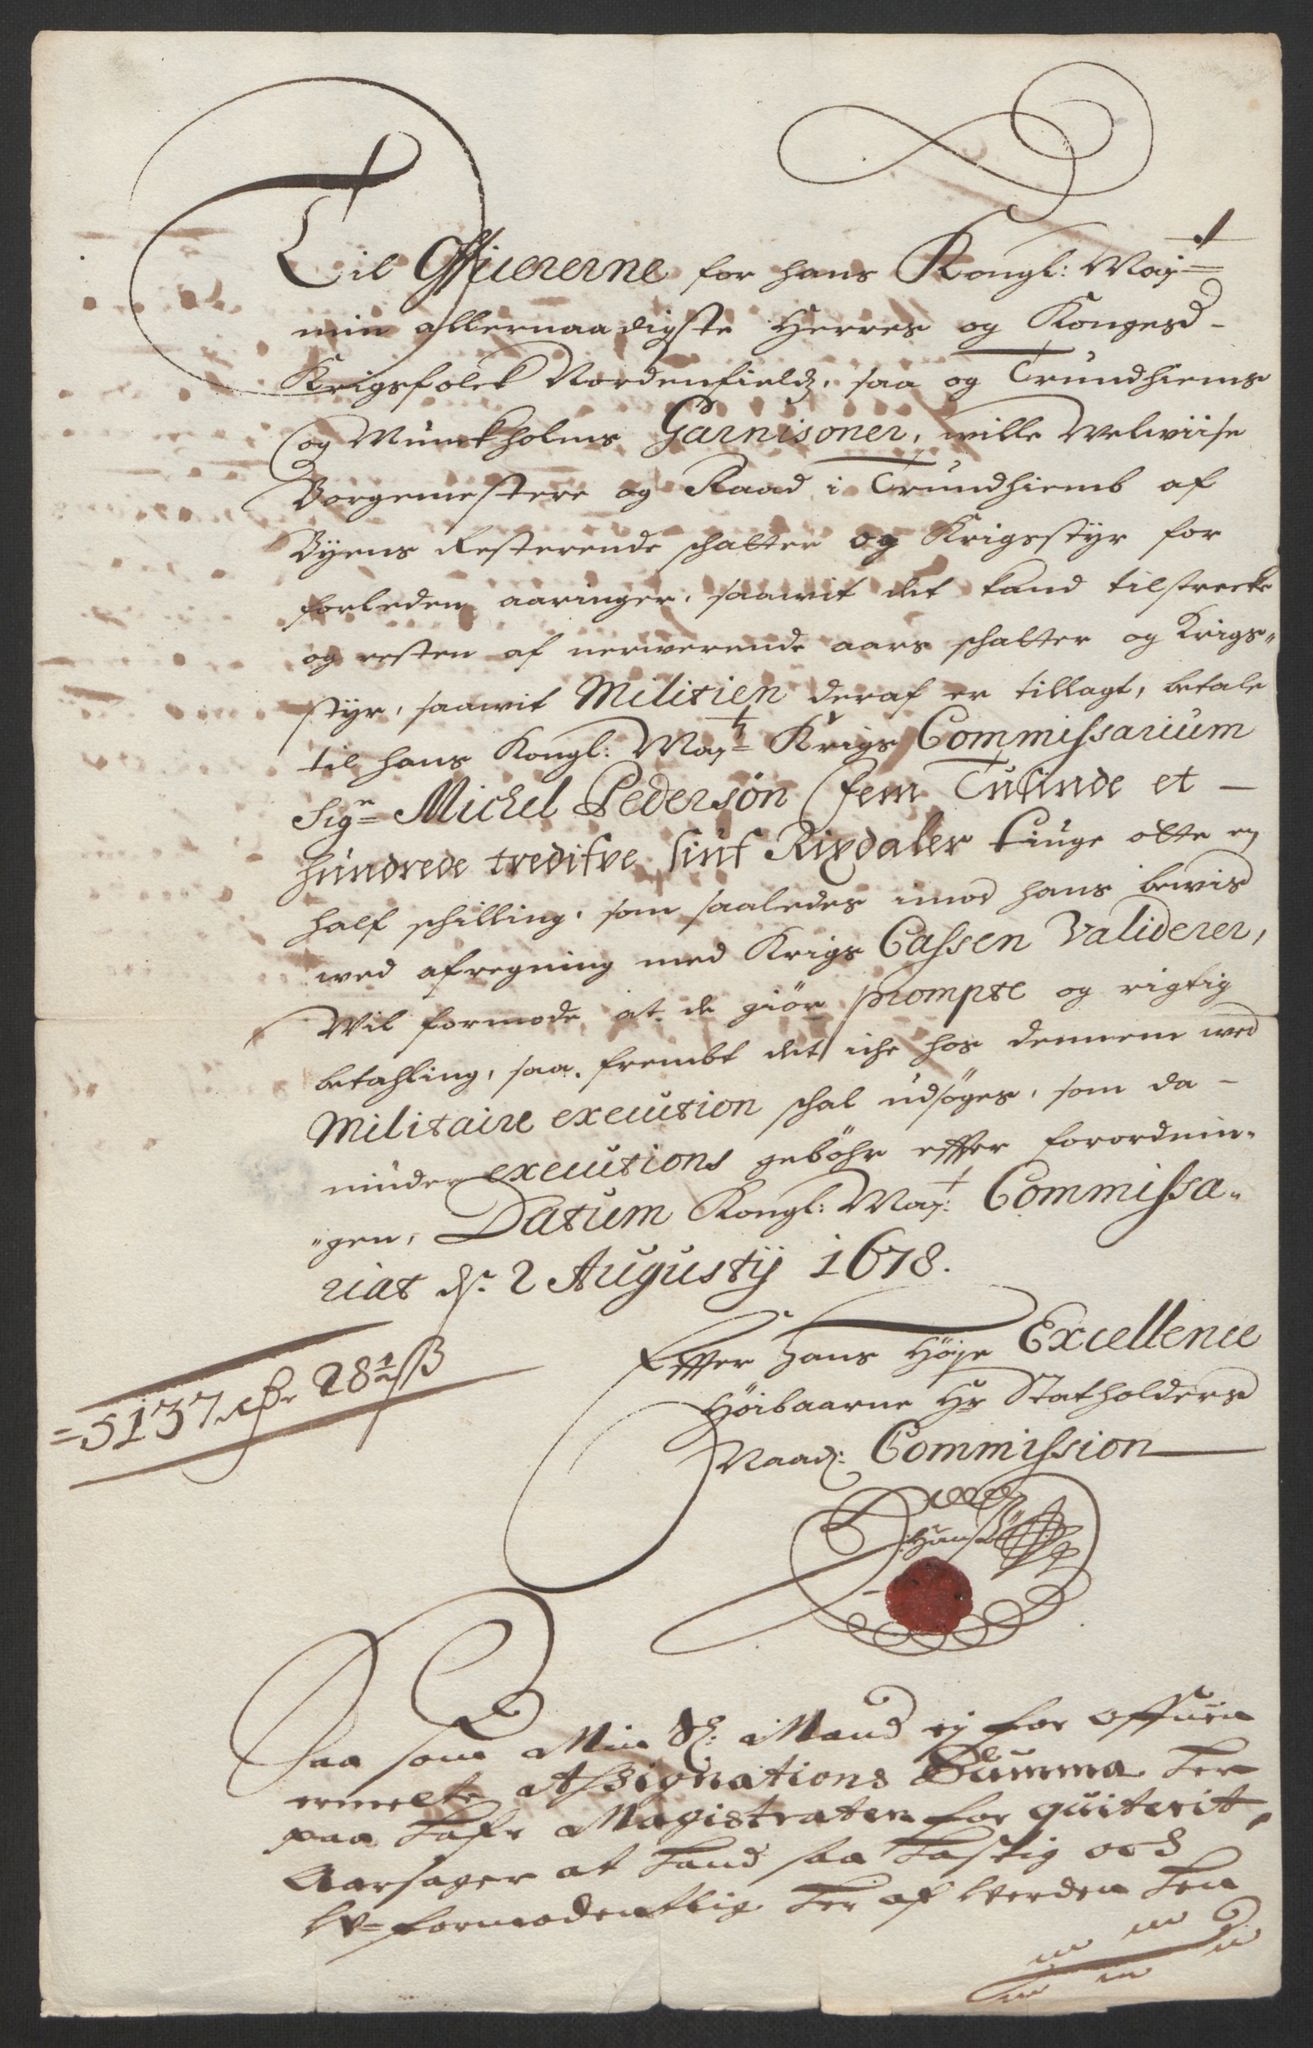 Til Officererne for hans Kongl: Mayt
min allernaadigste Herres og Konges
Krigsfolck Nordenfields, saa og Trundhiems
og Munckholms Garnisoner, wille Welwiise
Borgemestere og Raad i Trundhiemb af
Byens Resterende schatter og Krigsstyr for
forleden aaringer, saawit det kand tilstrecke
og resten af nerwerende aars schatter og Krigs-
styr, saawit Militien deraf er tillagt, betale
til hans Kongl: Mayts Krigs Commissarium
Sigr Michel Pedersøn (fem Tusinde et
hundrede tredifve siuf Rixdaler tiuge otte en
half schilling, som saaledes imod hans bewis
wed afregning med Krigs Cassen Validerer,
Wil formode at de giør prompte og rigtig
betahling, saa frembt det iche hos dennem wed
Militaire execution schal udsøges, som da
under executions gebøhr effter forordnin-
gen, Datum Kongl: May: Commissa-
riat ds. 2 Augustij 1678.
=5137 rdr 28½ ß
Effter Hans Høye Excellence
Høibaarne Hr Statholders
Naads: Commission
Hans
Saa som Min Sl: Mand ej for offuen
ermelte Assignations Summa her
paa hafr Magistraten for quiterit,
Aarsager at hand saa hastig och
Wformodentlig her af Werden hen